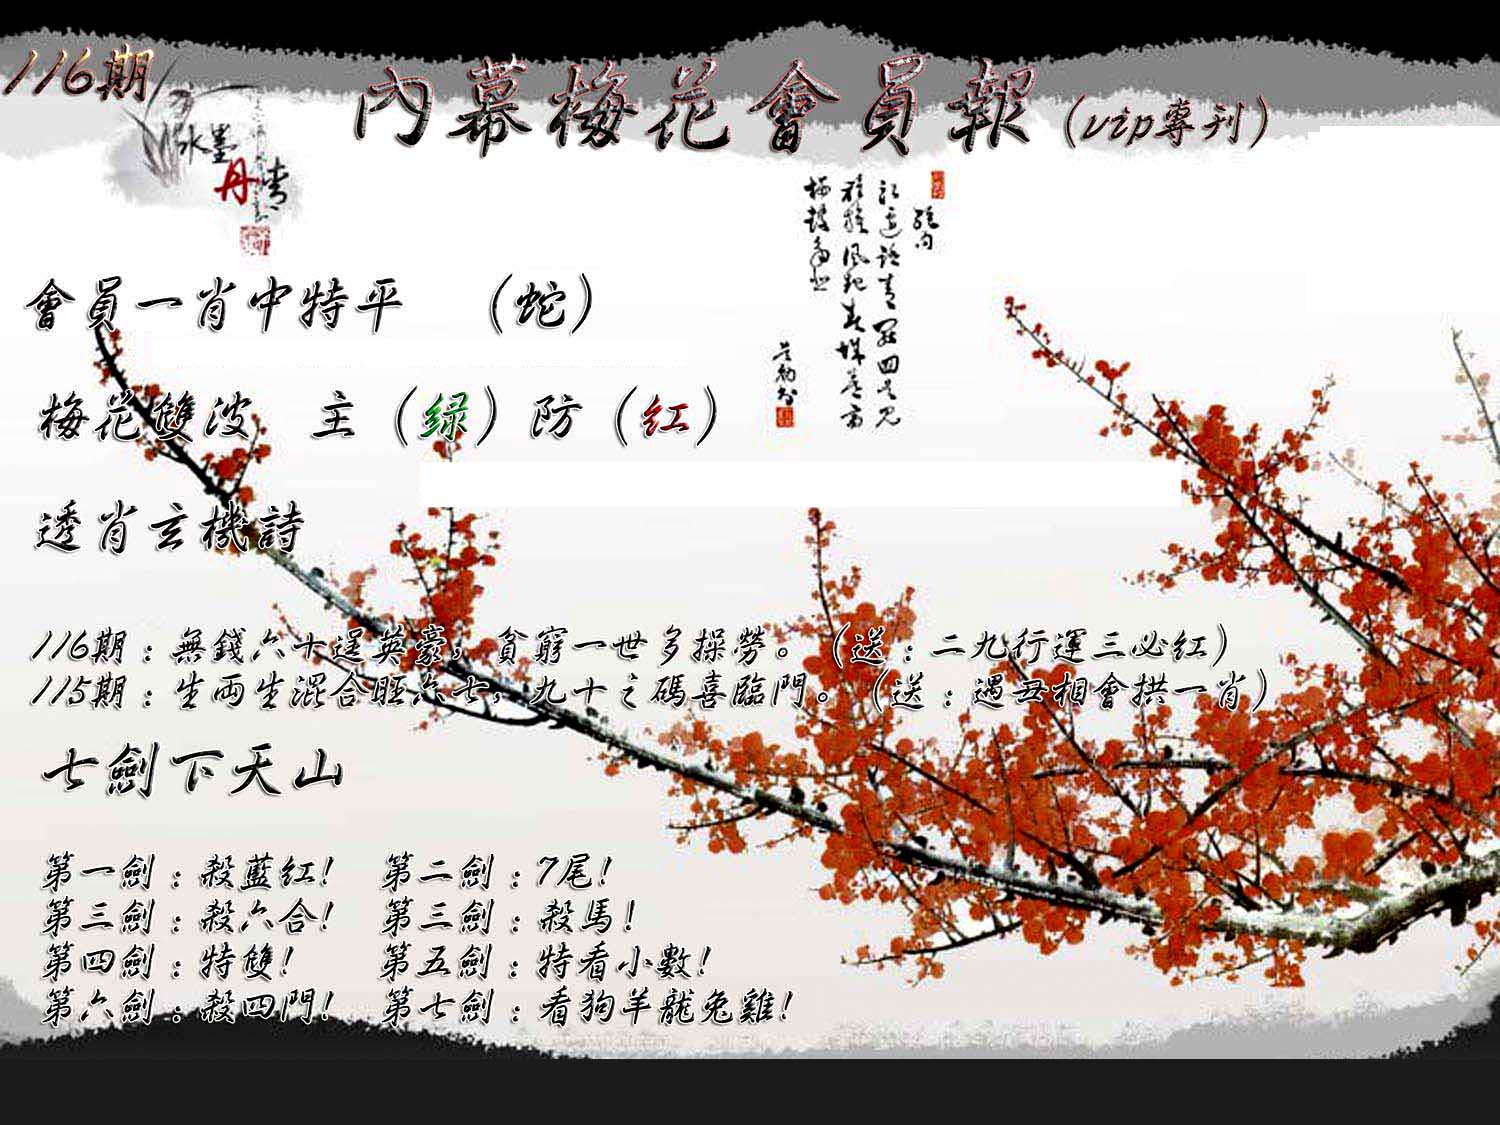 116期
內幕梅花會員報(vip專刊)
水墨
丹青
會員一肖中特平 (蛇)
梅花雙波 主(绿)防(红)
透肖玄機詩
116期:無錢六十逞英豪,貧窮一世多操勞。(送:二九行運三必紅)
115期:生両生混合旺六七,九十之碼喜臨門。(送:遇丑相會拱一肖)
七劍下天山
第一劍:殺藍紅! 第二劍:7尾!
第三劍:殺六合! 第三劍:殺馬!
第四劍:特雙! 第五劍:特看小數!
第六劍:殺四門! 第七劍:看狗羊龍兔雞!